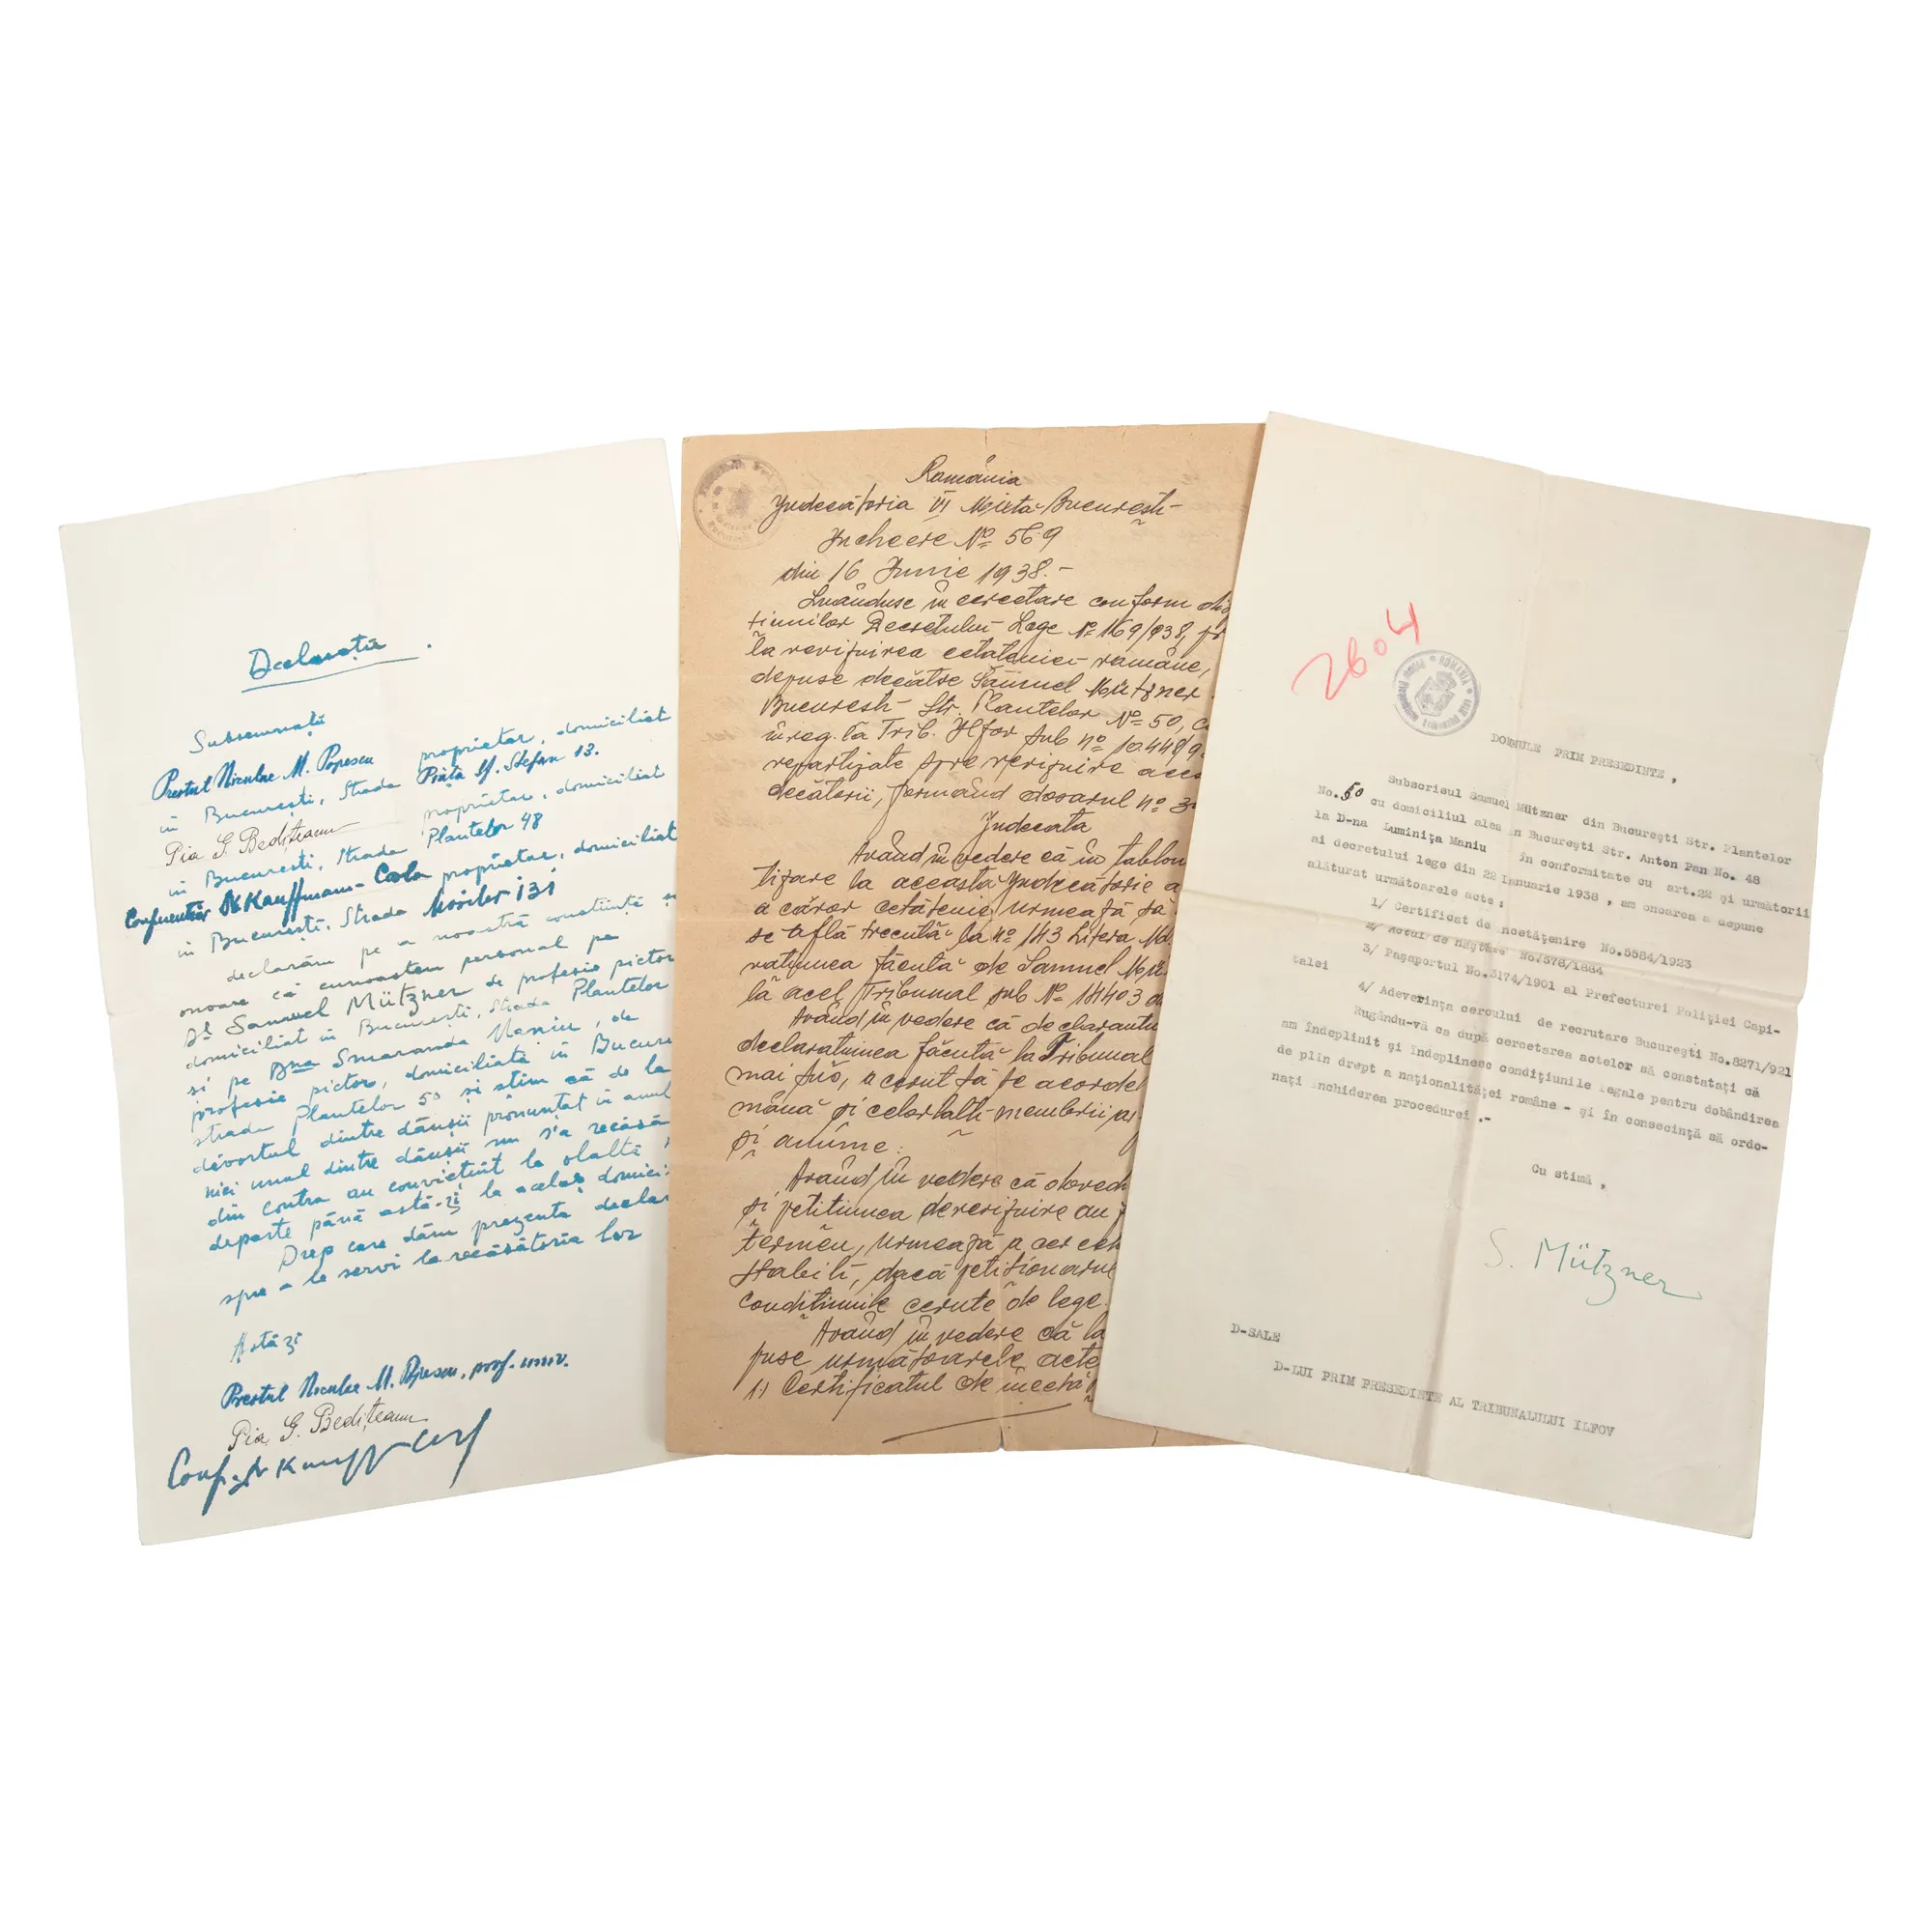 Declarație.
Subsemnații
Preotul Niculae M. Popescu proprietar, domiciliat
în București, Strada Piața Sf. Stefan 13.
Pia G. Bedițeanu proprietar, domiciliat
în București, Strada Plantelor 48
Kauffmann-Carla proprietar, domiciliat
în București, Strada Mosilor 131
declarăm pe a noastră conștiință și
onoare că cunoaștem personal pe
Dl Samuel Mützner de profesie pictor
domiciliat în București, Strada Plantelor
și pe Dna Smaranda Maniu, de
profesie pictor, domiciliată în Bucure
strada Plantelor 50 și stim că de la
divortul dintre dânșii pronunțat în anul
nici unul dintre dânșii nu s'a recăsă
din contra au conviețuit la olaltă
departe până astă-zi la acelaș domici
Drep care dăm prezenta declar
spre a le servi la recăsătoria lor
Astăzi
Preotul Niculae M. Popescu, prof. univ.
Pia G. Bedițeanu
România
Judecătoria VI Mixtă București
Incheere No 569
din 16 Iunie 1938.-
Luânduse în cercetare conform
țiunilor Decretului Lege No 169/938,
la revizuirea cetățeniei române,
depuse decătre Samuel Mützner
București Str. Plantelor No 50, c
înreg. la Trib. Ilfov sub no 10.448/9
repartizate spre revizuire aces
decătorii, formând dosarul no 3
Judecata
Având în vedere că în tablou
tizare la această Judecătorie a
a căror cetățenie urmează să
se află trecută la no 143 Litera M
rațiunea făcută de Samuel Mü
la acel Tribunal sub No 14403
Având în vedere că declarantu
declarațiunea făcută la Tribunal
mai sus, a cerut să se acorde
mână și celorlalți membrii
și anume:
Având în vedere că
și petițiunea de revizuire au
termen, urmează a cerceta
stabili, dacă petiționarul
condițiunile cerute de lege.
Având în vedere că la
puse următoarele acte
1) Certificatul de încetă
2604
ROMÂNIA
DOMNULE PRIM PRESEDINTE ,
Subscrisul Samuel Mützner din București Str. Plantelor
No. 50 cu domiciliul ales în București Str. Anton Pan No. 48
la D-na Luminița Maniu în conformitate cu art.22 și următorii
ai decretului lege din 22 Ianuarie 1938 , am onoarea a depune
alăturat următoarele acte :
1/ Certificat de încetățenire No.5584/1923
2/ Actul de naștere No.7578/1884
3/ Pașaportul No.3174/1901 al Prefecturei Poliției Capi-
talei
4/ Adeverința cercului de recrutare București No.8271/921
Rugându-vă ca după cercetarea actelor să constatați că
am îndeplinit și îndeplinesc condițiunile legale pentru dobândirea
de plin drept a naționalităței române - și în consecință să ordo-
nați închiderea procedurei .-
Cu stimă ,
S. Mützner
D-SALE
D-LUI PRIM PRESEDINTE AL TRIBUNALULUI ILFOV